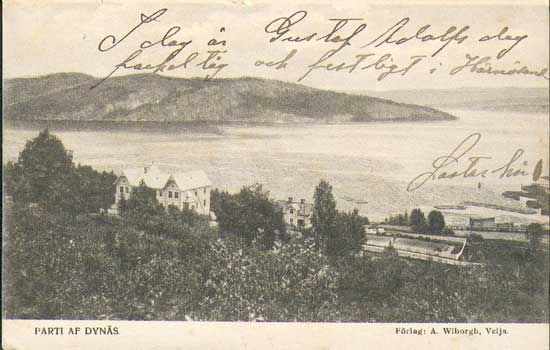 I dag är Gustaf Adolfs dag
fackeltåg och festligt i Härnösand
Lastar här
PARTI AF DYNÄS.
Förlag: A. Wiborgh, Veija.